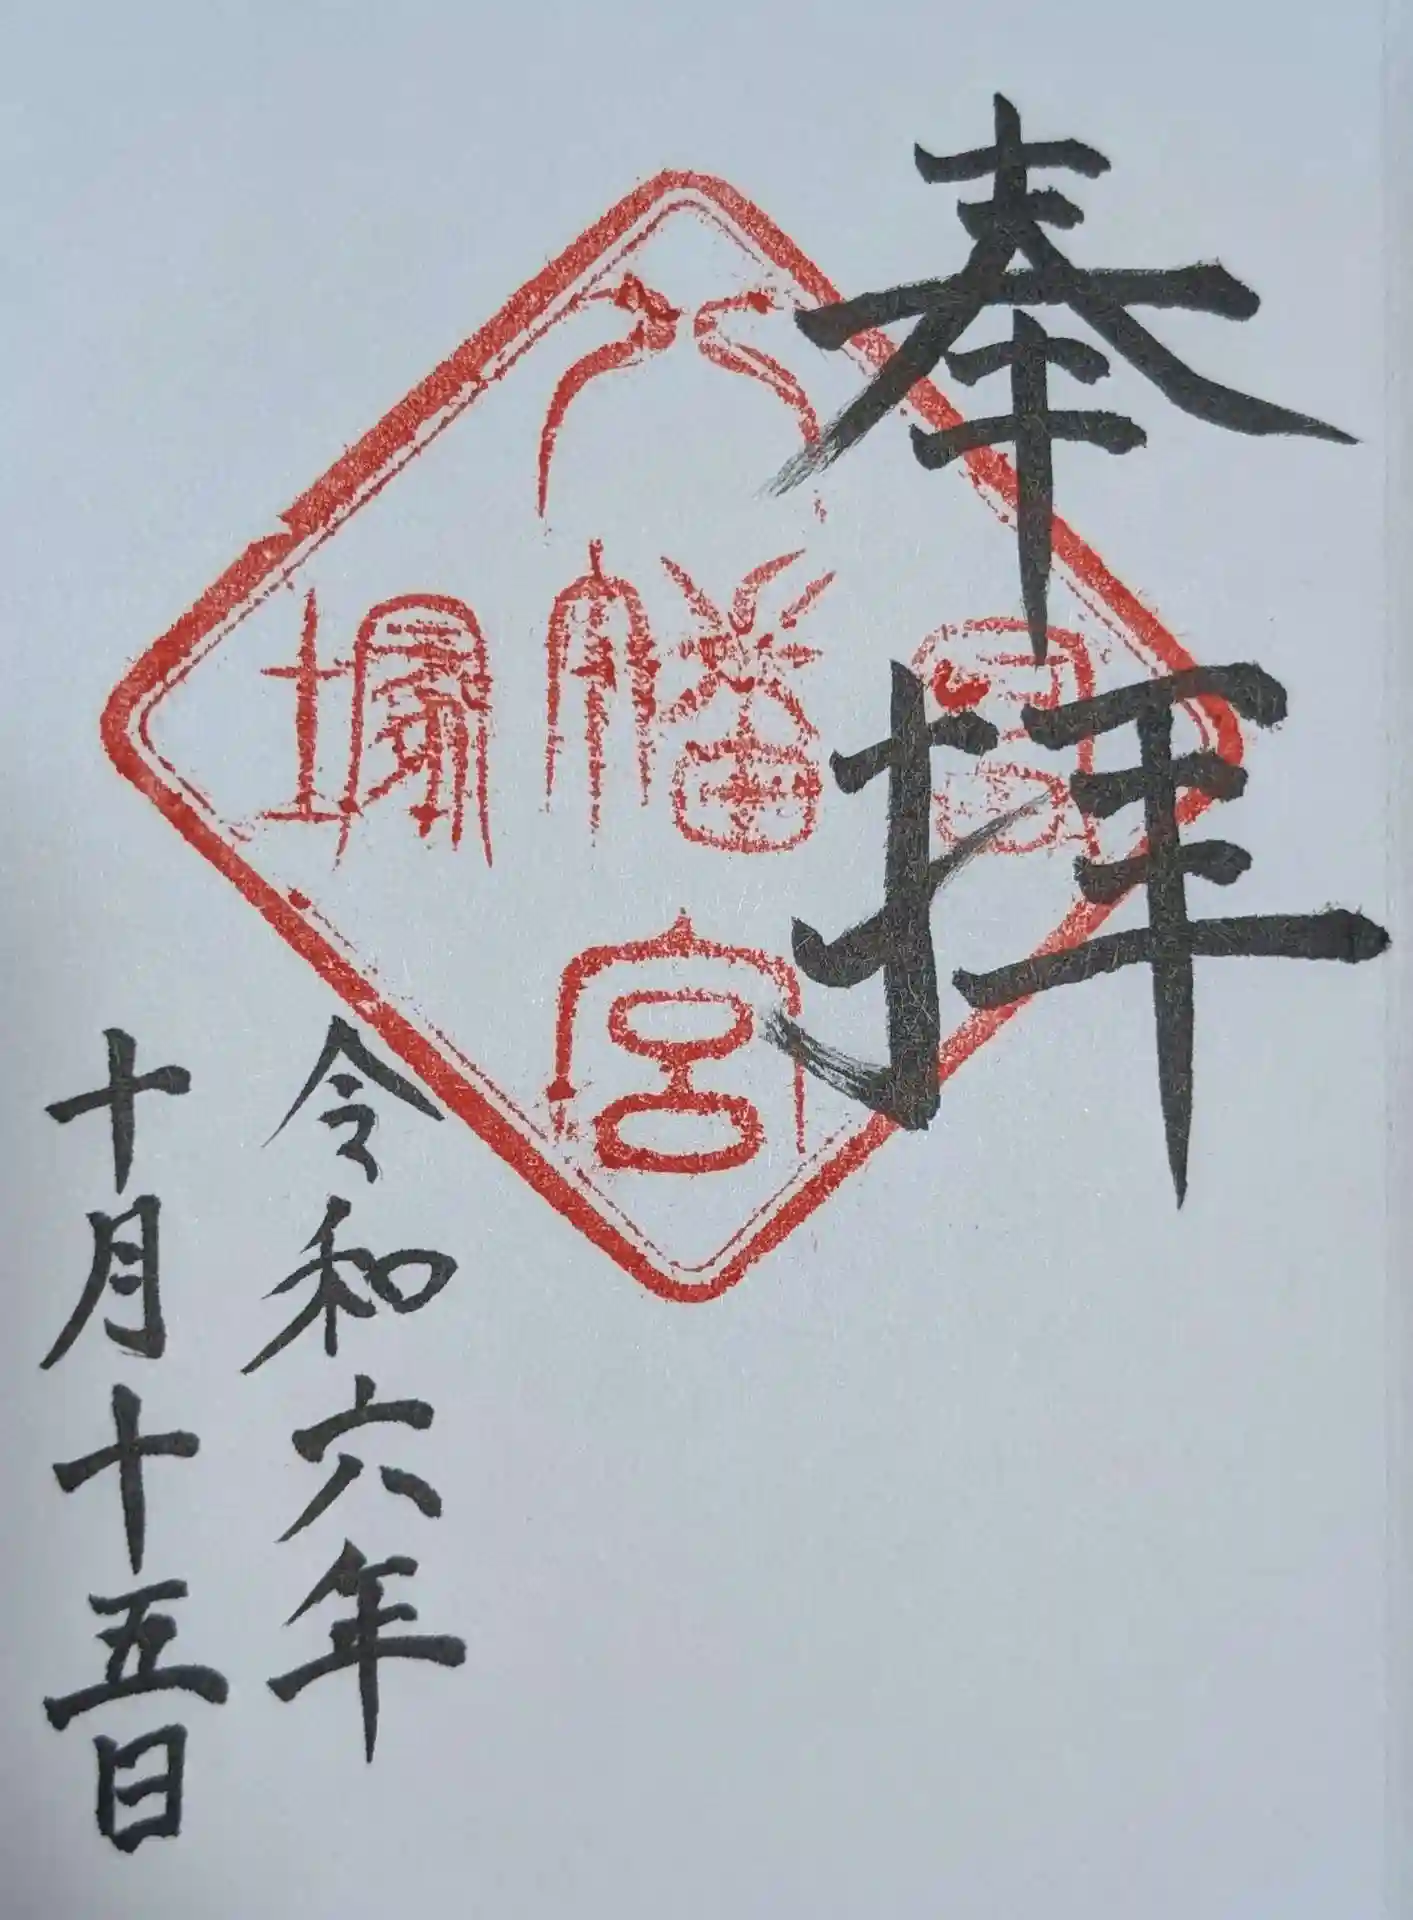 奉拝
冨塚
八幡宮
令和六年
十月十五日